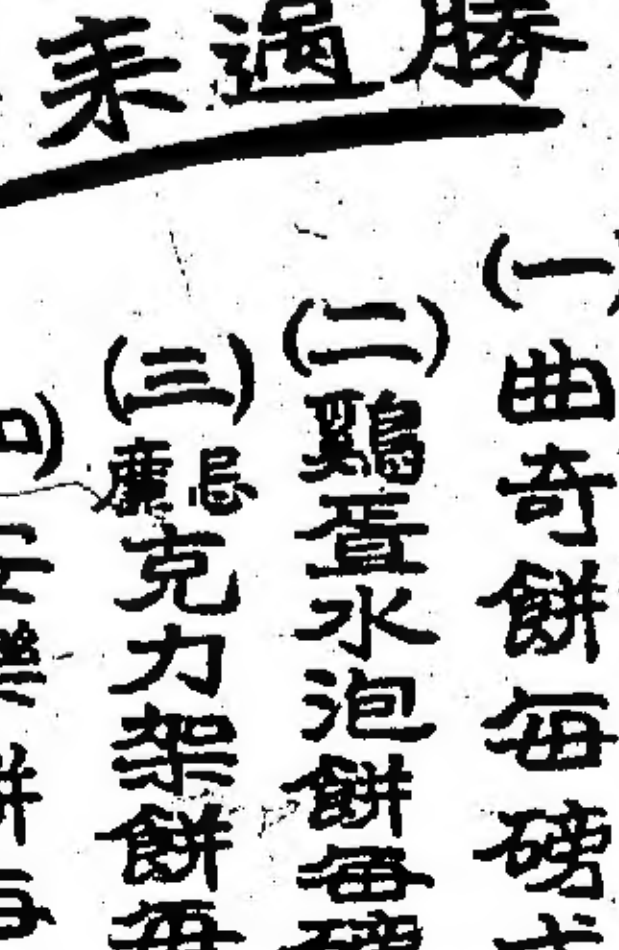 勝過耒
(一)曲奇餅每磅
(二)鷄蛋水泡餅每磅
(三)克力架餅每
餅每